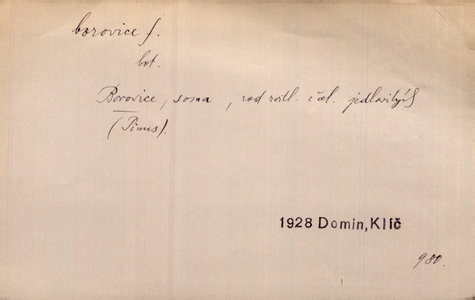 borovice f.
bot.
Borovice, sosna, rod rostl. z čel. jedlovitých
(Pinus).
1928 Domin, Klíč
980.